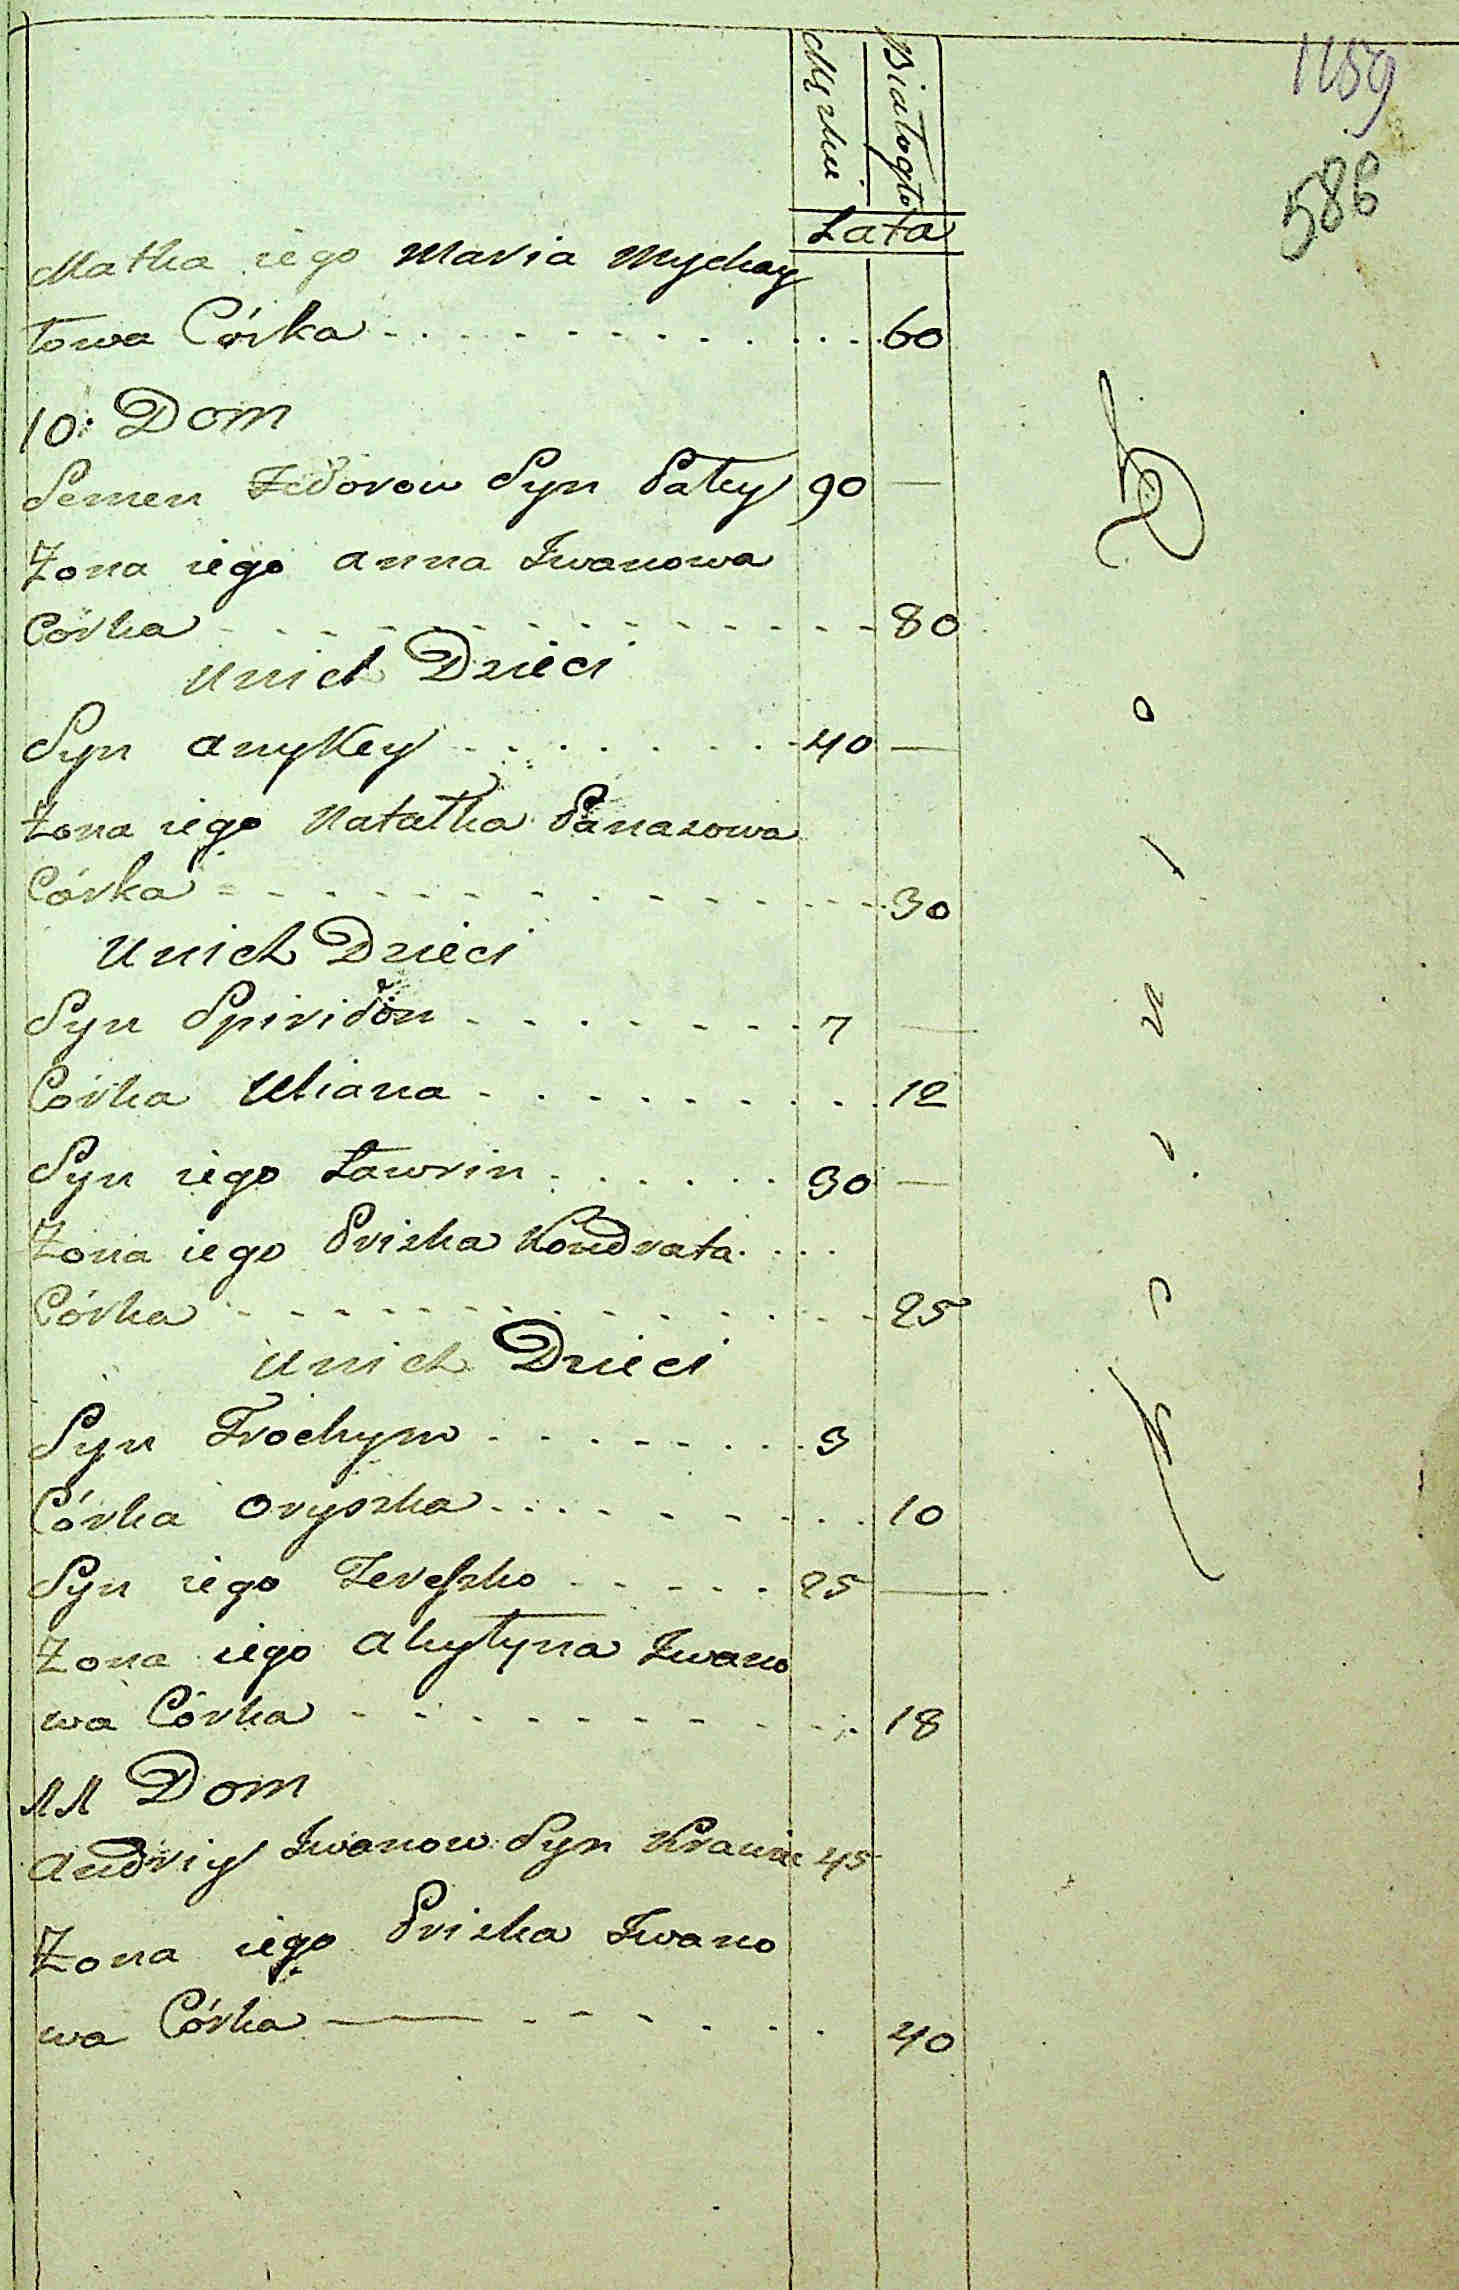 Męzkie
Białogło
1159
586
Lata
Matka iego Maria Mychay
łowa Córka 60
10: Dom
Semen Fedorow Syn Pałey 90 —
Żona iego Anna Iwanowa
Córka 80
Unich Dzieci
Syn Anykey 40 —
Żona iego Natałka Panasowa
Córka 30
Unich Dzieci
Syn Spiridon 7 —
Córka Uliana 12
Syn iego Ławrin 30 —
Żona iego Priska Kondrata
Córka 25
Unich Dzieci
Syn Trochym 3
Córka Oryszka 10
Syn iego Tereszko 25 —
Żona iego Akyłyna Iwano
wa Córka 18
11 Dom
Andriy Iwanow Syn 45
Żona iego Priska Iwano
wa Córka 40